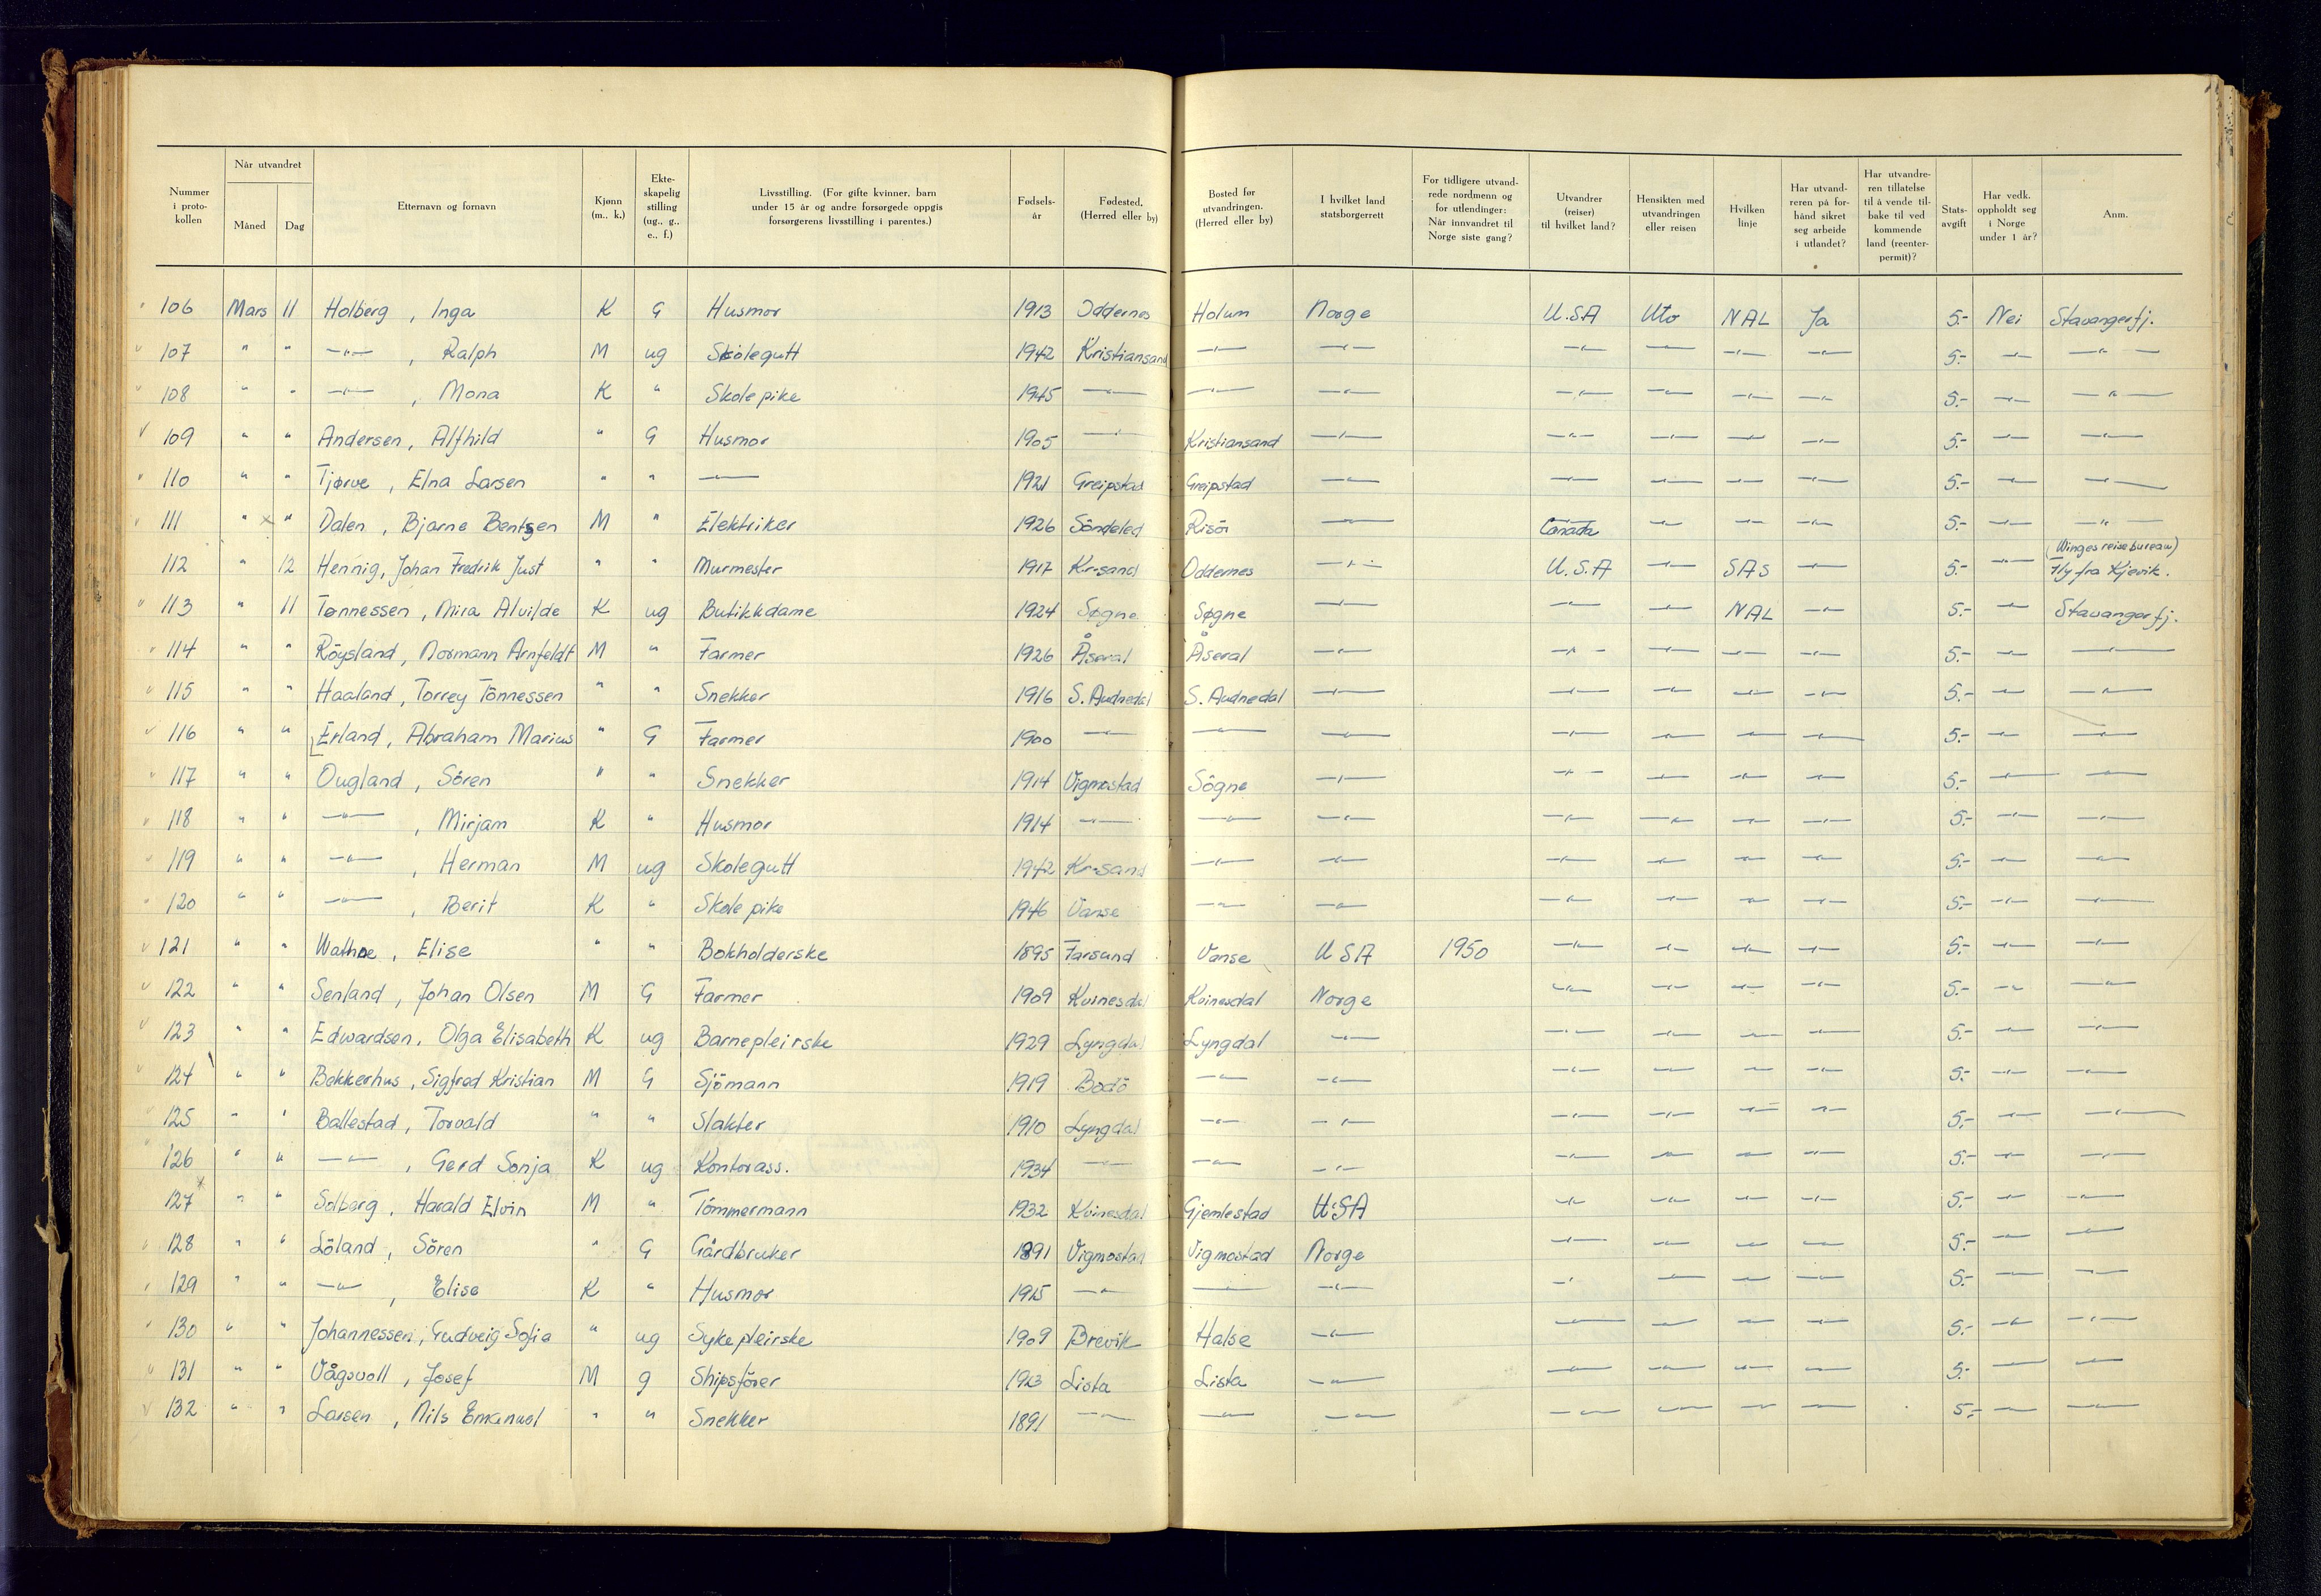 Nummer i proto-kollen | Når utvandret Måned | Dag | Etternavn og fornavn | Kjønn (m., k.) | Ekte-skapelig stilling (ug., g., e., f.) | Livsstilling. (For gifte kvinner, barn under 15 år og andre forsørgede oppgis forsørgerens livsstilling i parentes.) | Fødsels-år | Fødested. (Herred eller by) | Bosted før utvandringen. (Herred eller by) | I hvilket land statsborgerrett | For tidligere utvand-rede nordmenn og for utlendinger: Når innvandret til Norge siste gang? | Utvandrer (reiser) til hvilket land? | Hensikten med utvandringen eller reisen | Hvilken linje | Har utvand-reren på for-hånd sikret seg arbeide i utlandet? | Har utvandre-ren tillatelse til å vende til-bake til ved kommende land (reenter-permit)? | Stats-avgift | Har vedk. oppholdt seg i Norge under 1 år? | Anm.
106 Mars 11 Holberg, Inga K G Husmor 1913 Oddernes Holum Norge U.S.A Utv NAL Ja 5.- Nei Stavangerfj.
107 " " —"— , Ralph M ug Skolegutt 1942 Kristiansand —"— —"— —"— —"— —"— —"— 5.- —"— —"—
108 " " —"— , Mona K " Skolepike 1945 —"— —"— —"— —"— —"— —"— —"— 5.- —"— —"—
109 " " Andersen, Alfhild " G Husmor 1905 —"— Kristiansand —"— —"— —"— —"— —"— 5.- —"— —"—
110 " " Tjørve, Elna Larsen " " —"— 1921 Greipstad Greipstad —"— —"— —"— —"— —"— 5.- —"— —"—
111 " " Dalen, Bjarne Bentsen M " Elektriker 1926 Söndeled Risör —"— Canada —"— —"— —"— 5.- —"— —"—
112 " 12 Hennig, Johan Fredrik Just " " Murmester 1917 Kr.sand Oddernes —"— U.S.A —"— SAS —"— 5.- —"— (Winges reisebureau) Fly fra Kjevik.
113 " 11 Tønnessen, Mira Alvilde K ug Butikkdame 1924 Søgne Søgne —"— —"— —"— NAL —"— 5.- —"— Stavangerfj.
114 " " Röysland, Normann Arnfeldt M " Farmer 1926 Åseral Åseral —"— —"— —"— —"— —"— 5.- —"— —"—
115 " " Haaland, Torrey Tönnessen " " Snekker 1916 S. Audnedal S. Audnedal —"— —"— —"— —"— —"— 5.- —"— —"—
116 " " Erland, Abraham Marius " G Farmer 1900 —"— —"— —"— —"— —"— —"— —"— 5.- —"— —"—
117 " " Ougland, Sören " " Snekker 1914 Vigmostad Sögne —"— —"— —"— —"— —"— 5.- —"— —"—
118 " " —"— , Mirjam K " Husmor 1914 —"— —"— —"— —"— —"— —"— —"— 5.- —"— —"—
119 " " —"— , Herman M ug Skolegutt 1942 Kr.sand —"— —"— —"— —"— —"— —"— 5.- —"— —"—
120 " " —"— , Berit K " Skolepike 1946 Vanse —"— —"— —"— —"— —"— —"— 5.- —"— —"—
121 " " Wathne, Elise " " Bokholderske 1895 Farsund Vanse USA 1950 —"— —"— —"— —"— 5.- —"— —"—
122 " " Senland, Johan Olsen M G Farmer 1909 Kvinesdal Kvinesdal Norge —"— —"— —"— —"— 5.- —"— —"—
123 " " Edwardsen, Olga Elisabeth K ug Barnepleirske 1929 Lyngdal Lyngdal —"— —"— —"— —"— —"— 5.- —"— —"—
124 " " Bekkerhus, Sigfred Kristian M G Sjömann 1919 Bodö —"— —"— —"— —"— —"— —"— 5.- —"— —"—
125 " " Ballestad, Torvald " " Slakter 1910 Lyngdal —"— —"— —"— —"— —"— —"— 5.- —"— —"—
126 " " —"— , Gerd Sonja K ug Kontorass. 1934 —"— —"— —"— —"— —"— —"— —"— 5.- —"— —"—
127 " " Solberg, Harald Elvin M " Tömmermann 1932 Kvinesdal Gjemlestad U.S.A —"— —"— —"— —"— 5.- —"— —"—
128 " " Löland, Sören " G Gårdbruker 1891 Vigmostad Vigmostad Norge —"— —"— —"— —"— 5.- —"— —"—
129 " " —"— , Elise K " Husmor 1915 —"— —"— —"— —"— —"— —"— —"— 5.- —"— —"—
130 " " Johannessen, Gudveig Sofia " ug Sykepleirske 1909 Brevik Halse —"— —"— —"— —"— —"— 5.- —"— —"—
131 " " Vågsvoll, Josef M g Shipsförer 1913 Lista Lista —"— —"— —"— —"— —"— 5.- —"— —"—
132 " " Larsen, Nils Emanuel " " Snekker 1891 —"— —"— —"— —"— —"— —"— —"— 5.- —"— —"—